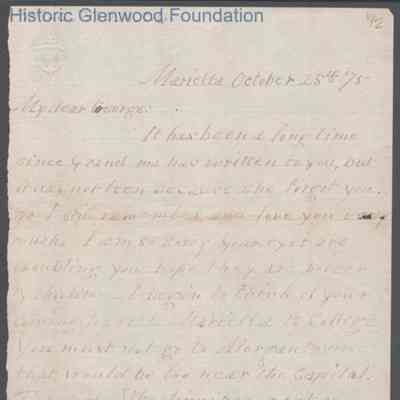 Historic Glenwood Foundation
Marietta October 25th '75
My dear George:
It has been a long time
since Grand ma has written to you, but
it has not been because she forgot you.
I still remember, and love you very
much. I am so sorry your eyes are
troubling you hope they are
I begin to think of your
coming to Marietta to College
You must not go to Morgantown
that would be too near the Capital.